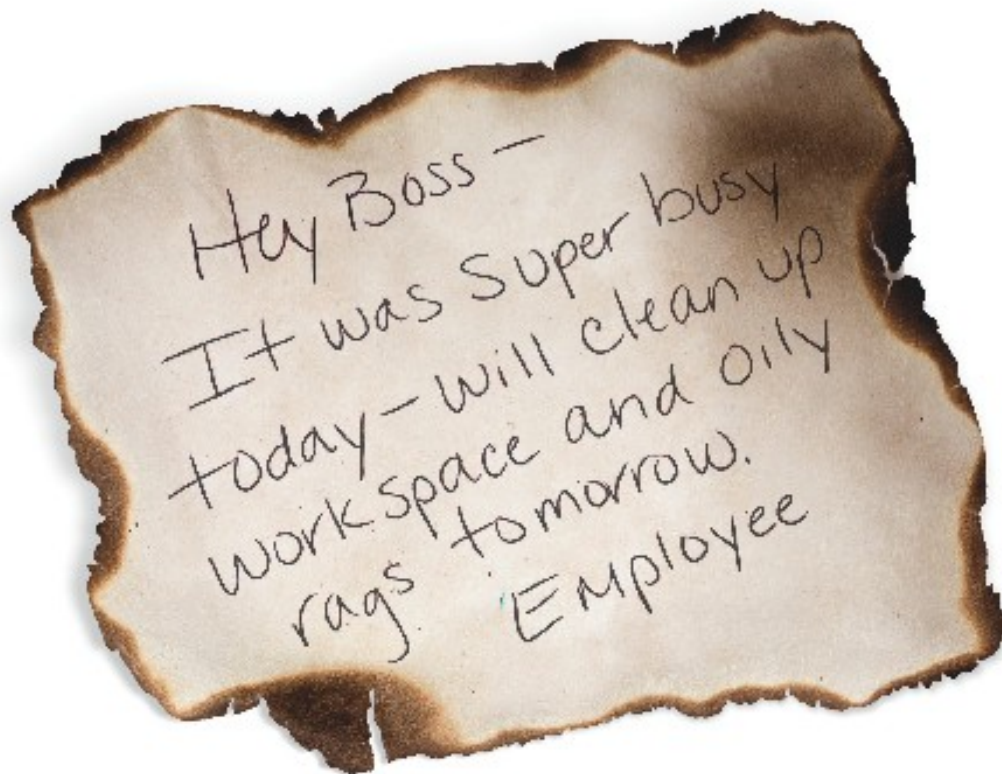 Hey Boss –
It was Super busy
today – will clean up
workspace and oily
rags tomorrow.
Employee